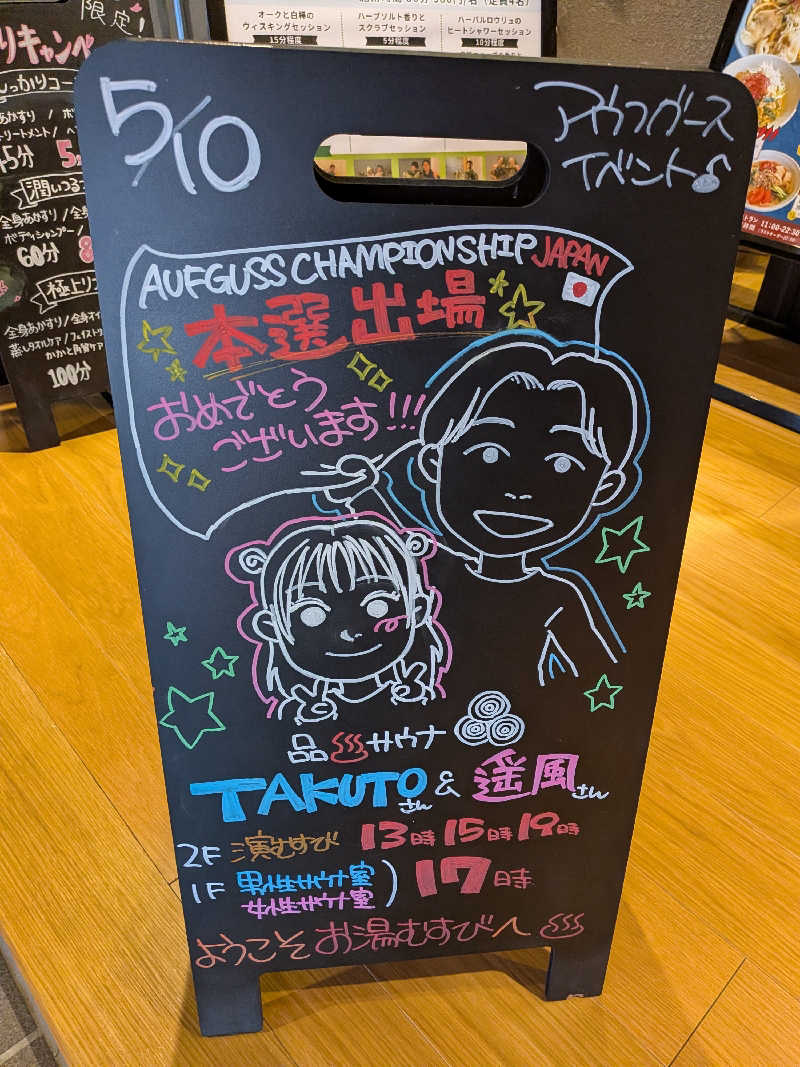 限定!
りキャンペ
オークと白樺の
ウィスキングセッション
15分程度
ハーブソルト香りと
スクラブセッション
5分程度
ハーバルロウリュの
ヒートシャワーセッション
10分程度
5/10
アウフグース
イベント♪
AUFGUSS CHAMPIONSHIP JAPAN
本選出場
おめでとう
ございます!!!
品♨サウナ
TAKUTOさん & 遥風さん
2F 演むすび 13時 15時 19時
1F 男性サウナ室
女性サウナ室 ) 17時
ようこそ お湯むすびへ ♨
全身あかすり/全身
ボディシャンプー/
60分
全身あかすり/全身
かかと角質ケア
100分
11:00-22:30